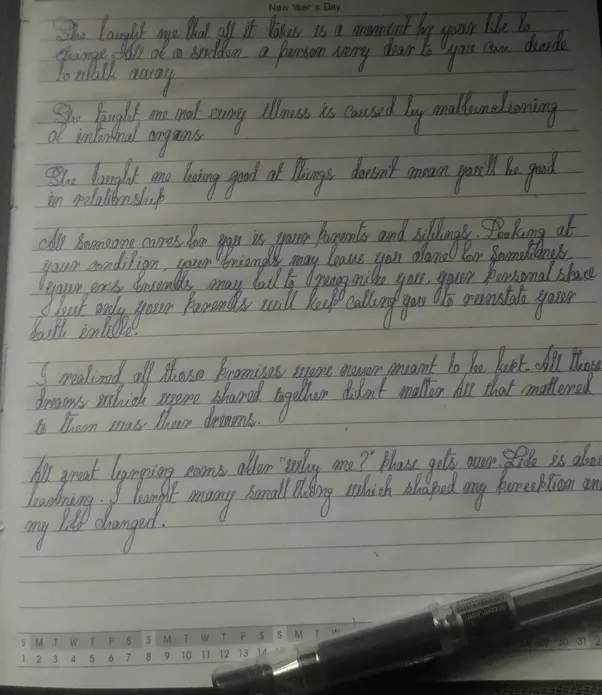 New Year's Day
She taught me that all it takes is a moment for your life to
change. All of a sudden a person very dear to you can decide
to walk away
She taught me not every illness is caused by malfunctioning
of internal organs
She taught me being good at things doesn't mean you'll be good
in relationship
All someone cares for you is your parents and siblings. Looking at
your condition, your friends may leave you alone for sometimes,
your exs friends may fail to recognize you, your personal space
but only your parents will keep calling you to reinstate your
faith in life.
I realized all those promises were never meant to be kept. All those
dreams which were shared together didn't matter All that mattered
to them was their dreams.
All great learning coms after "why me?" phase gets over. Life is
learning. I learnt many small thing which shaped my perception
my life changed.
S M T W T F S S M T W T F S S M T W
1 2 3 4 5 6 7 8 9 10 11 12 13 14
29 30 31